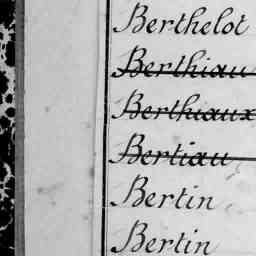 Berthelot
Berthiau
Berthiaux
Bertiau
Bertin
Bertin